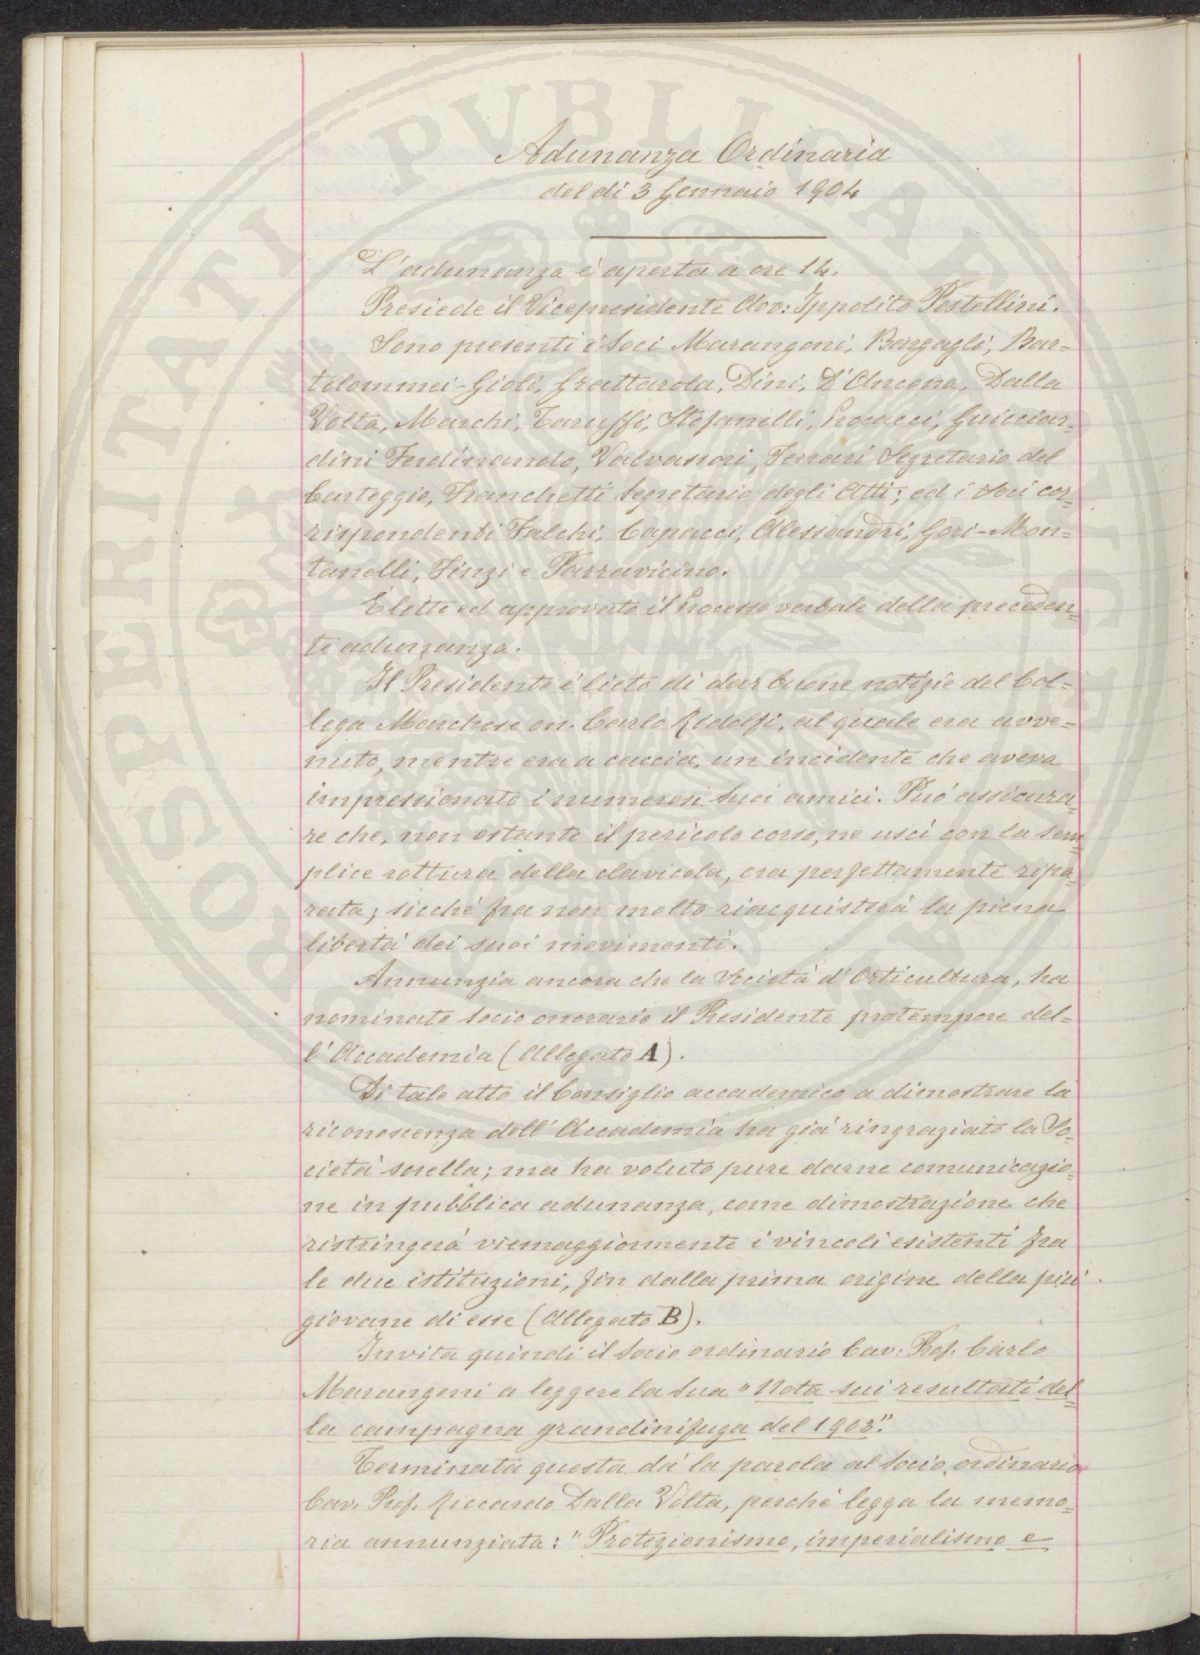 Adunanza Ordinaria
del dì 3 Gennaio 1904
L'adunanza è aperta a ore 14.
Presiede il Vicepresidente Avv: Ippolito Pestellini.
Sono presenti i Soci Marangoni, Bargagli, Bar=
tolommei-Gioli, Grattarola, Dini, D'Ancona, Dalla
Volta, Marchi, Taruffi, Stefanelli, Procacci, Guicciar=
dini Ferdinando, Valvassori, Ferrari Segretario del
Carteggio, Franchetti Segretario degli Atti; ed i Soci cor=
rispondenti Falchi, Capacci, Alessandri, Gori-Mon=
tanelli, Finzi e Parravicino.
È letto ed approvato il Processo verbale della preceden=
te adunanza.
Il Presidente è lieto di dar buone notizie del Col=
lega Marchese on. Carlo Ridolfi, al quale era avve=
nuto, mentre era a caccia, un incidente che aveva
impressionato i numerosi suoi amici. Può assicura=
re che, non ostante il pericolo corso, ne uscì con la sem=
plice rottura della clavicola, ora perfettamente ripa=
rata; sicché fra non molto riacquisterà la piena
libertà dei suoi movimenti.
Annunzia ancora che la Società d'Orticultura, ha
nominato Socio onorario il Presidente protempore del=
l'Accademia (Allegato A).
Di tale atto il Consiglio accademico a dimostrare la
riconoscenza dell'Accademia ha già ringraziato la So=
cietà sorella; ma ha voluto pure darne comunicazio=
ne in pubblica adunanza, come dimostrazione che
ristringerà viemaggiormente i vincoli esistenti fra
le due istituzioni, fin dalla prima origine della più
giovane di esse (Allegato B).
Invita quindi il Socio ordinario Cav. Prof. Carlo
Marangoni a leggere la sua "Nota sui resultati del=
la campagna grandinifuga del 1903".
Terminata questa dà la parola al Socio ordinario
Cav. Prof. Riccardo Dalla Volta, perché legga la memo=
ria annunziata: "Protezionismo, imperialismo e